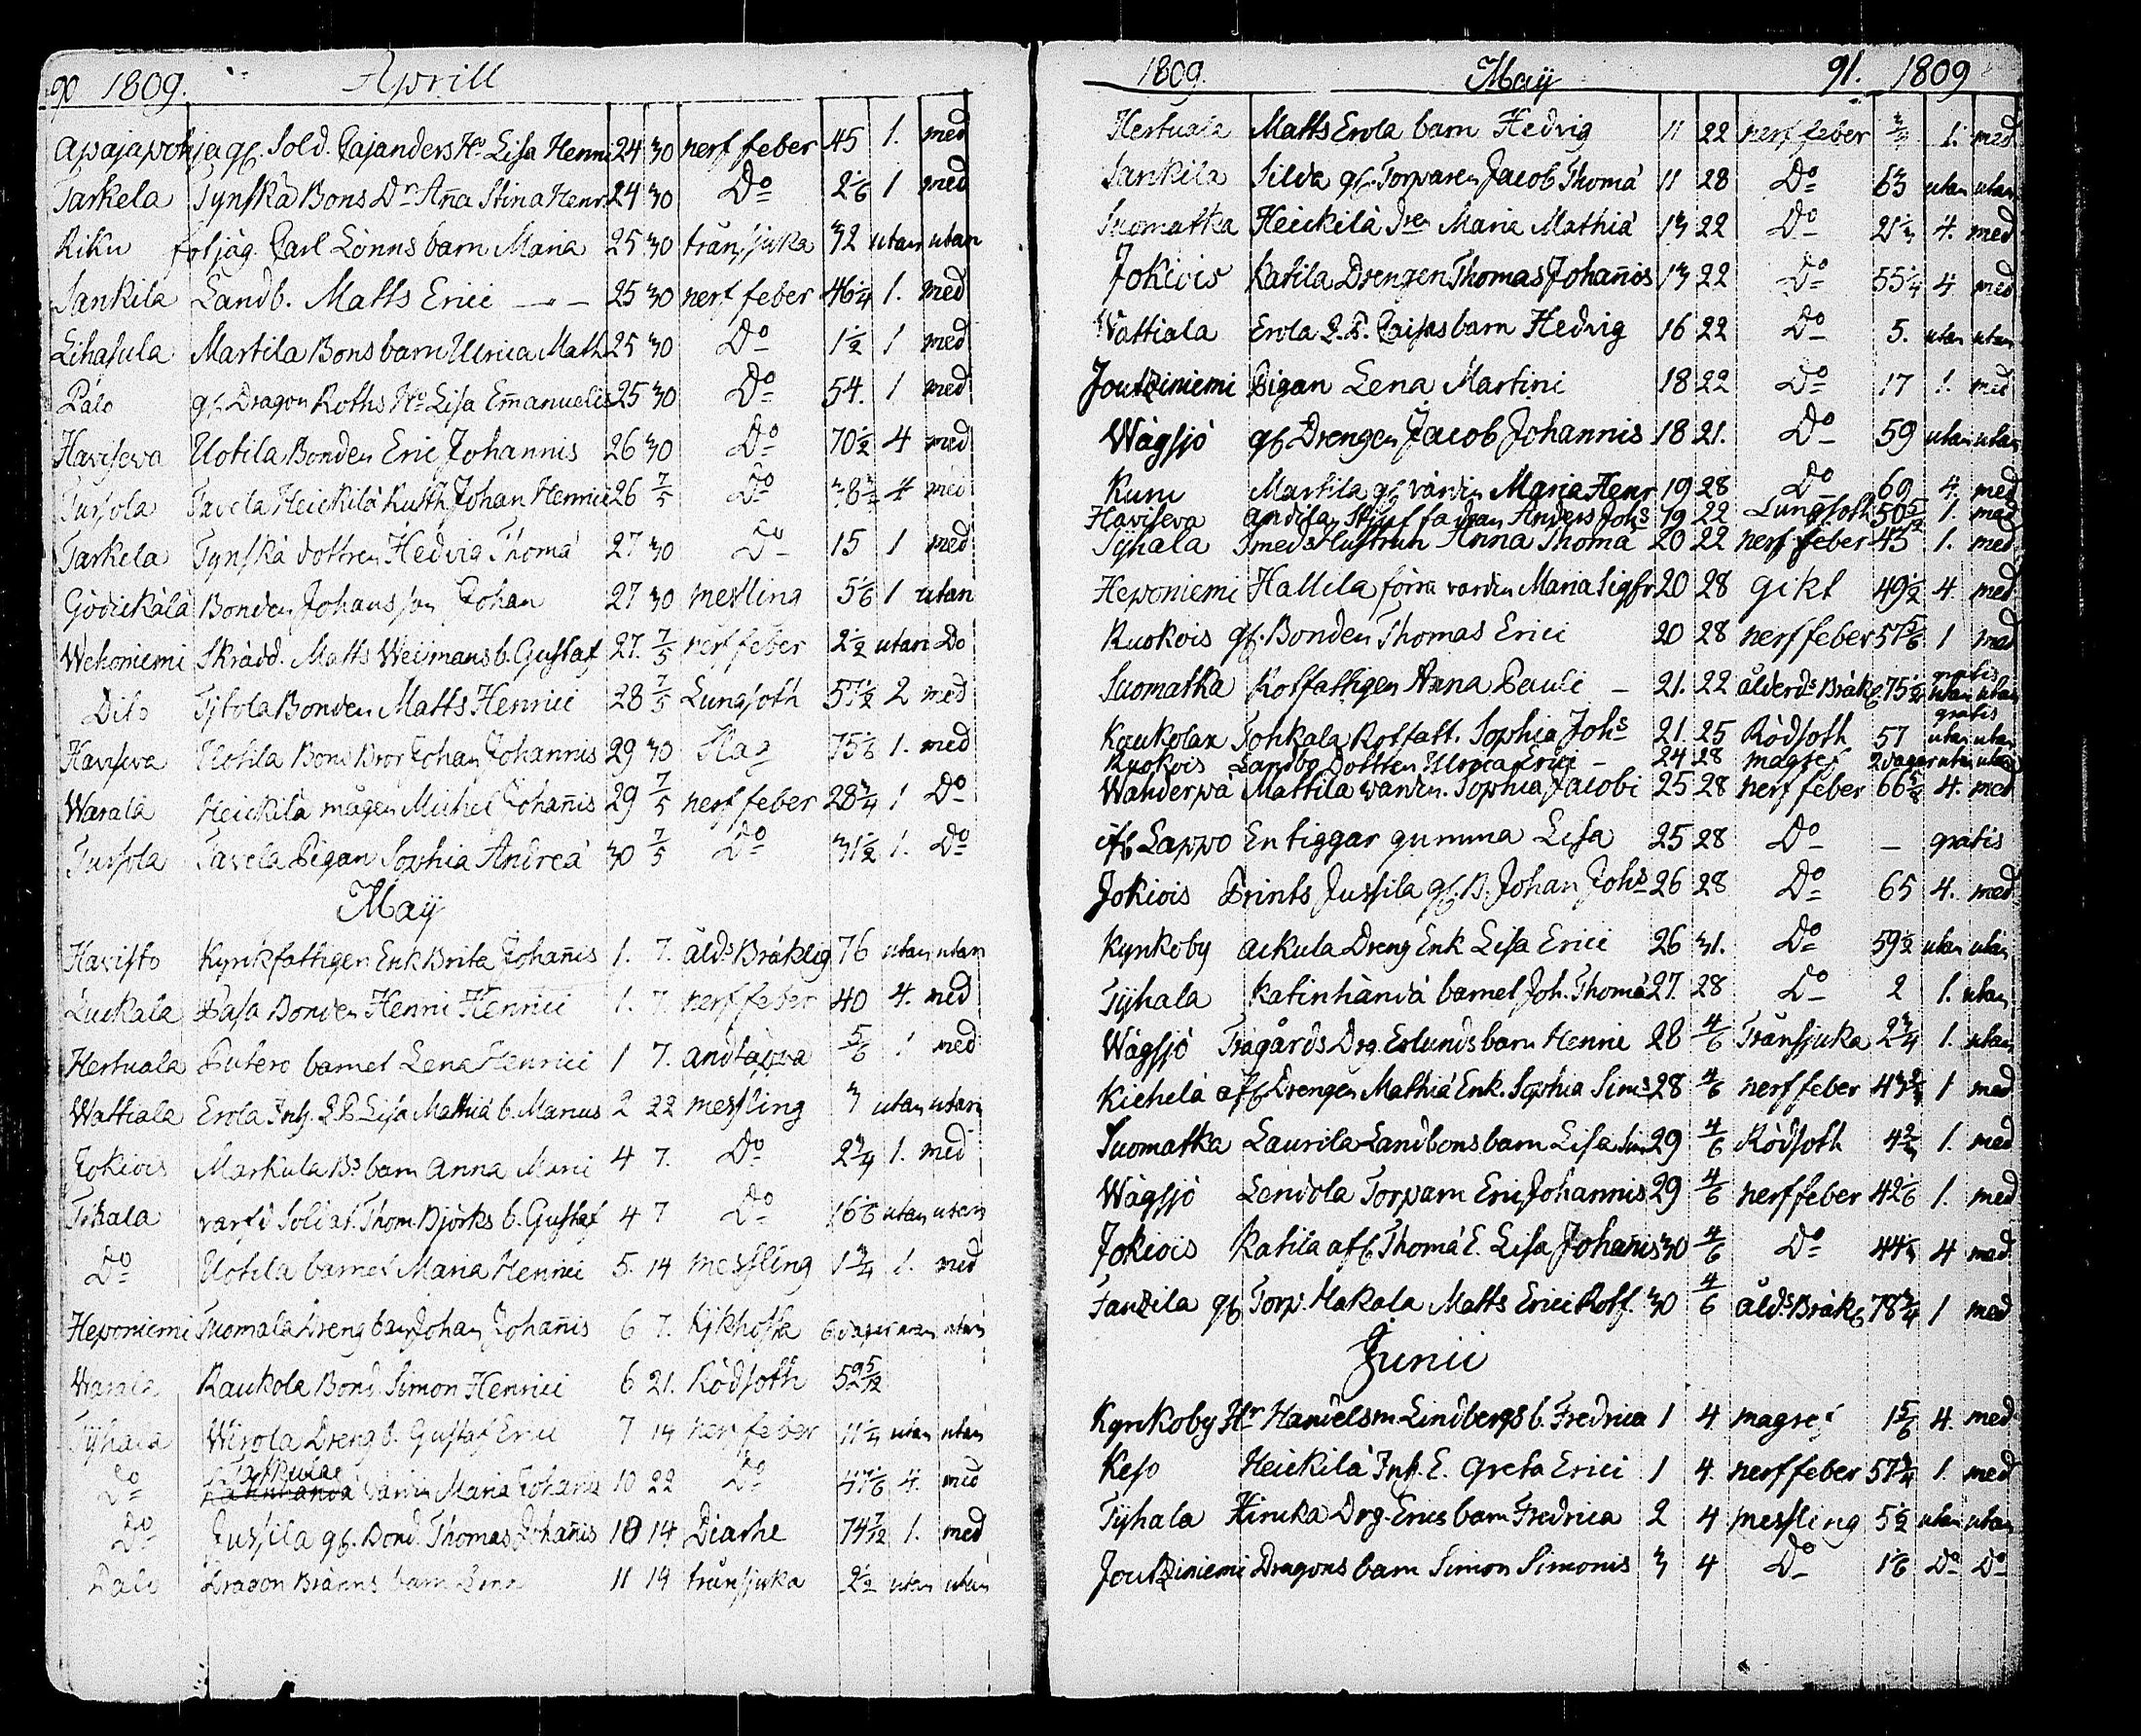 90 1809. Aprill
Apajapohja gf. Sold. Cajanders Hu Lisa Henri 24 30 nerffeber 45 1. med
Tarkela Tynskä Bons Dr Aña Stina Henr. 24 30 Do 2 1/6 1 med
Riku fotjäg. Carl Lönns barn Maria 25 30 trånsjuka 32 utan utan
Sankila Landb. Matts Erici 25 30 nerffeber 46 1/4 1. med
Lihasula Martila Bons barn Ulrica Math 25 30 Do 1 1/2 1 med
Palo gf. Dragon Roths Hu Lisa Emanuelis 25 30 Do 54. 1 med
Haviseva Uotila Bonden Eric Johannis 26 30 Do 70 1/2 4 med
Tursola Tavela Heickilä Johan Henrici 26 7/5 Do 4 med
Tarkela Tynskä dottren Hedvig Thomä 27 30 Do 15 1 med
Gödickälä Bonden Johansson Johan 27 30 messling 5 1/6 1 utan
Wehoniemi Skrädd. Matts Weimans b. Gustaf 27. 7/5 nerffeber 2 1/2 utan Do
Dito Bonden Matts Henrici 28 7/5 Lungsoth 57 1/2 2 med
Haviseva Uotila Bons Bror Johan Johannis 29 30 Slag 75 1/6 1. med
Warala Heickilä mågen Michel Johañis 29 7/5 nerffeber 28 3/4 1 Do
Tursola Tavela Pigan Sophia Andreä 30 7/5 Do 31 1/2 1. Do
Maij
Havisto Kyrkfattigen Enk Brita Johañis 1. 7. åld.s Bräklig 76 utan utan
Luckala Pasa Bonden Henric Henrici 1. 7. nerffeber 40 4. med
Hertuala Putero barnet Lena Henrici 1 7. andtäppa 5/6 1 med
Wattiala Erola Inh. Lisa Mathiä b. Marius 2 22 messling 3 utan utan
Jokiois Markula Bs barn Anna Mari 4 7. Do 2 3/4 1. med
Tihala Soldat. Thom. Björks b. Gustaf 4 7 Do utan utan
Do Uotila barnet Maria Henrici 5. 14 messling 1 3/4 1. med
Heponiemi Tuomala Dreng barn Johan Johañis 6 7. Kikhosta 6 dagar utan utan
Warala Kaukola Bond. Simon Henrici 6 21. Rödsoth 52 5/12
Tijhala Wirola Dreng b. Gustaf Erici 7 14 nerffeber utan utan
Do värdin Maria Johañis 10 22 Do 47 1/6 4. med
Do Jussila gf. Bond. Thomas Johañis 10 14 Diarhe 74 7/12 1. med
Palo Dragon Bränns barn 11 14 trånsjuka 2 1/2 utan utan
1809. Maij 91. 1809
Hertuala Matts Erola barn Hedvig 11 22 nerffeber 3/4 1. med
Sankila Silda gf. Torparen Jacob Thomä 11 28 Do 63 utan utan
Suomatka Heickilä Dren Maria Mathiä 13 22 Do 4. med
Jokiois Katila Drengen Thomas Johañis 13 22 Do 55 1/4 4 med
Wattiala Erola Caisas barn Hedvig 16 22 Do 5. utan utan
Joutziniemi Pigan Lena Martini 18 22 Do 17 1. med
Wågsjö gf. Drengen Jacob Johannis 18 21. Do 59 utan utan
Kuru Martila gf. värdin Maria Henr 19 28 Do 60 4. med
Haviseva Anders Johs 19 22 Lungsoth 50 5/12 1. med
Tijhala Smeds Hustrun Anna Thomä 20 22 nerffeber 45 1. med
Heponiemi Hallila förra värdin Maria Sigfr 20 28 gikt 49 1/2 4. med
Ruokois gf. Bonden Thomas Erici 20 28 nerffeber 57 1/6 1 med
Suomatka Rotfattigen Anna Pauli 21. 22 ålderds Bräk 75 1/2 gratis utan utan
Kaukolax Sohkala Rotfatt. Sophia Johs 21. 25 Rödsoth 57 gratis utan utan
Ruokois Landbo Dottren Ulrica Erici 24 28 magref 2 dagar utan utan
Wahderpä Mattila värdin. Sophia Jacobi 25 28 nerffeber 66 5/8 4. med
ifr. Lappo En tiggar gumma Lisa 25 28 Do gratis
Jokiois Prints Jussila gf. B. Johan Johs 26 28 Do 65 4. med
Kyrkoby Dreng Enk Lisa Erici 26 31. Do 59 1/2 utan utan
Tijhala Katinhändä barnet Joh. Thomä 27. 28 Do 2 1. utan
Wågsjö Trägårds Drg. Eslunds barn Henric 28 4/6 Trånsjuka 2 3/4 1. utan
Kiehelä afl. Drengen Mathiä Enk. Sophia Sims 28 4/6 nerffeber 1 med
Suomatka Laurila Landbons barn Lisa Sim 29 4/6 Rödsoth 1. med
Wågsjö Lendola Torparn Eric Johannis 29 4/6 nerffeber 42 1/6 1. med
Jokiois Katila afl. Thomä E. Lisa Johañis 30 4/6 Do 4 med
Tauzila gf. Torp. Hakala Matts Erici Rotf. 30 4/6 åld.s Bräk 78 3/4 1 med
Junii
Kyrkoby Hr Handelsm Lindbergs b. Fredrica 1 4 magref 1 5/6 4. med
Keso Heickilä Inh. E. Greta Erici 1 4. nerffeber 57 3/4 1. med
Tijhala Hirnka Drg. Erics barn Fredrica 2 4 messling 5 1/2 utan utan
Joutziniemi Dragons barn Simon Simonis 3 4 Do 1 1/6 Do Do